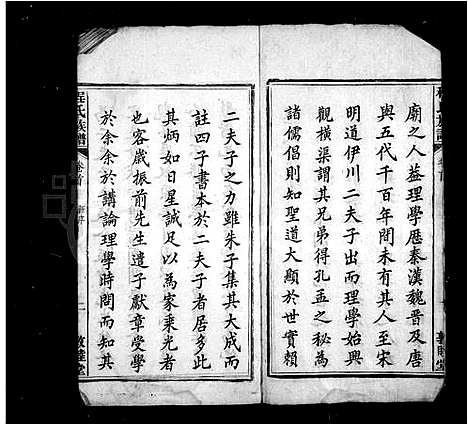 廟之人蓋理學歷秦漢魏晉及唐
與五代千百年間未有其人至宋
明道伊川二夫子出而理學始興
觀橫渠謂其兄弟得孔孟之秘為
諸儒倡則知聖道大顯於世實賴
二夫子之力雖朱子集其大成而
註四子書本於二夫子者居多此
其炳如日星誠足以為家乘光者
也容歲振前先生遣子獻章受學
於余余於講論理學時間而知其
程氏族譜
卷首
二
敦睦堂